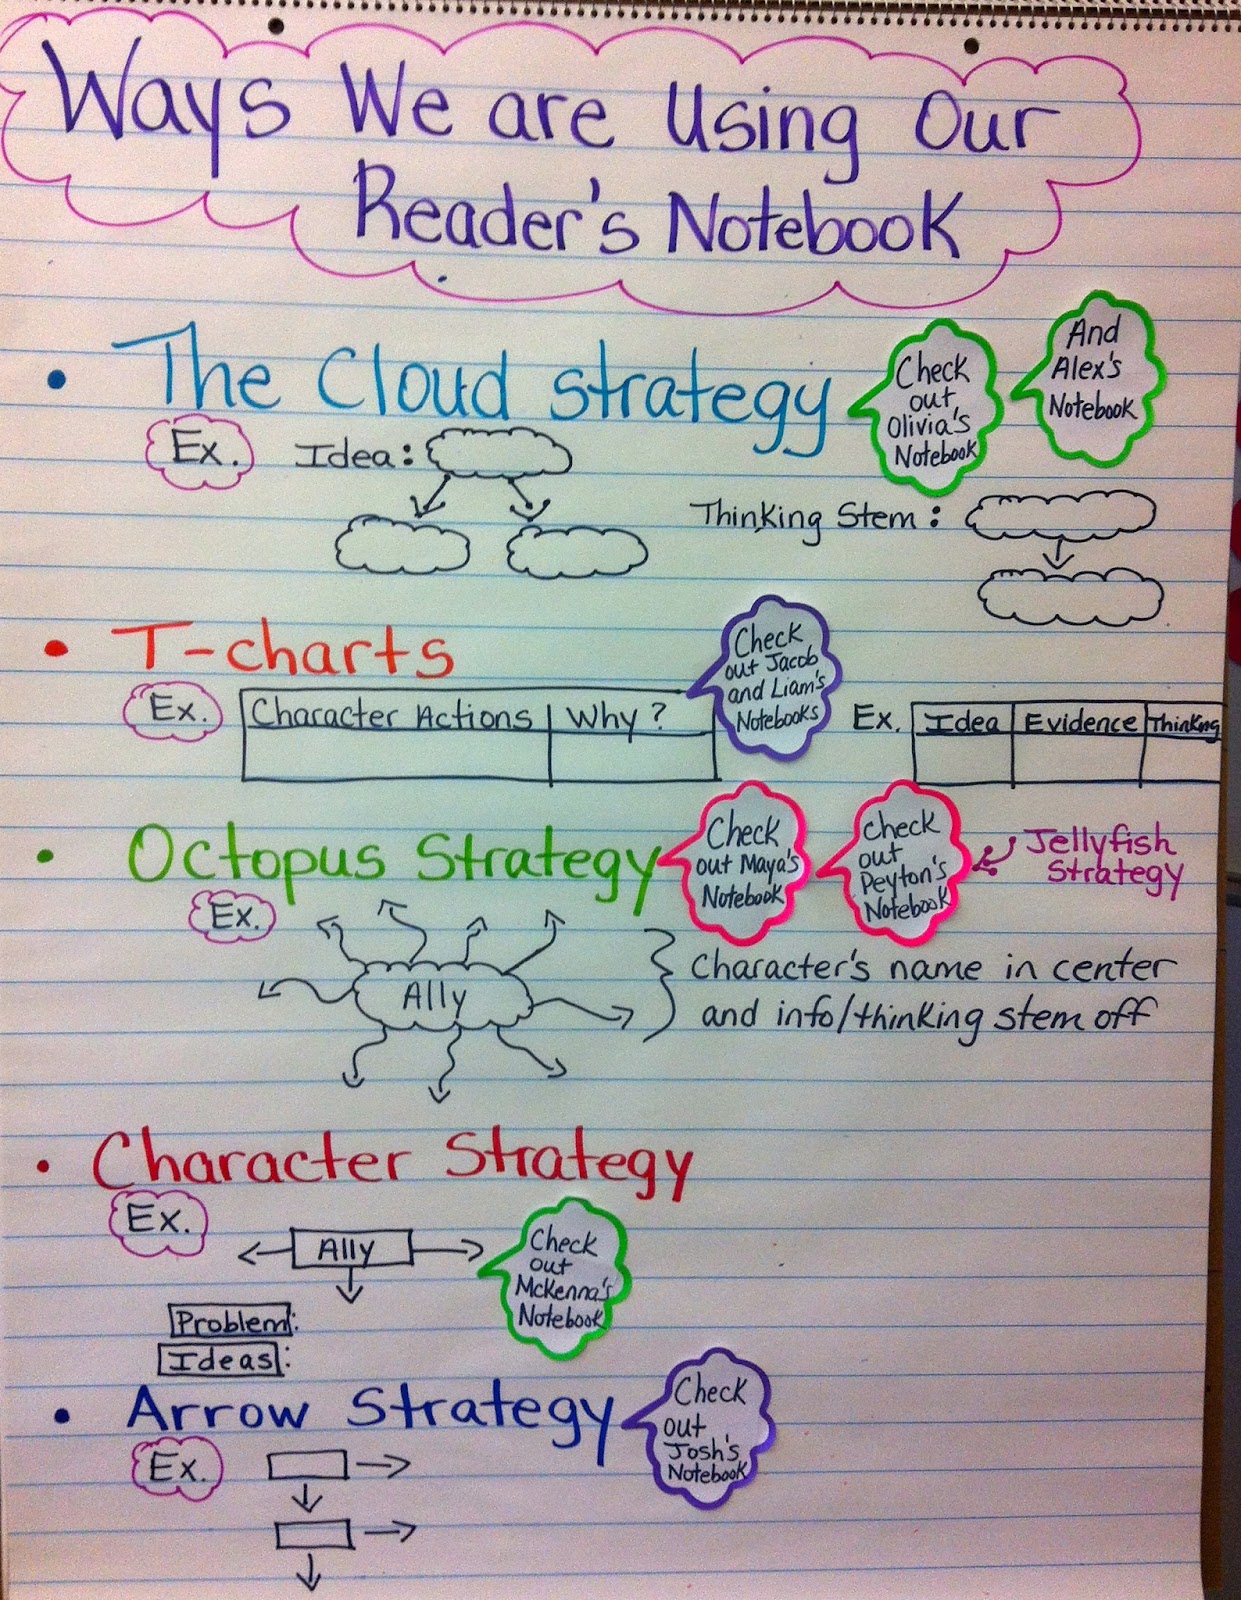 Ways We are Using Our
Reader's Notebook
• The Cloud Strategy
Check
out
Olivia's
Notebook
And
Alex's
Notebook
Ex. Idea:
Thinking Stem:
• T-charts
Check
out Jacob
and Liam's
Notebooks
Ex. Character Actions Why?
Ex. Idea Evidence Thinking
• Octopus Strategy
Check
out Maya's
Notebook
Check
out
Peyton's
Notebook
Jellyfish
Strategy
Ex.
Ally
Character's name in center
and info/thinking stem off
• Character Strategy
Ex.
Ally
Check
out
McKenna's
Notebook
Problem:
Ideas:
• Arrow Strategy
Check
out
Josh's
Notebook
Ex.